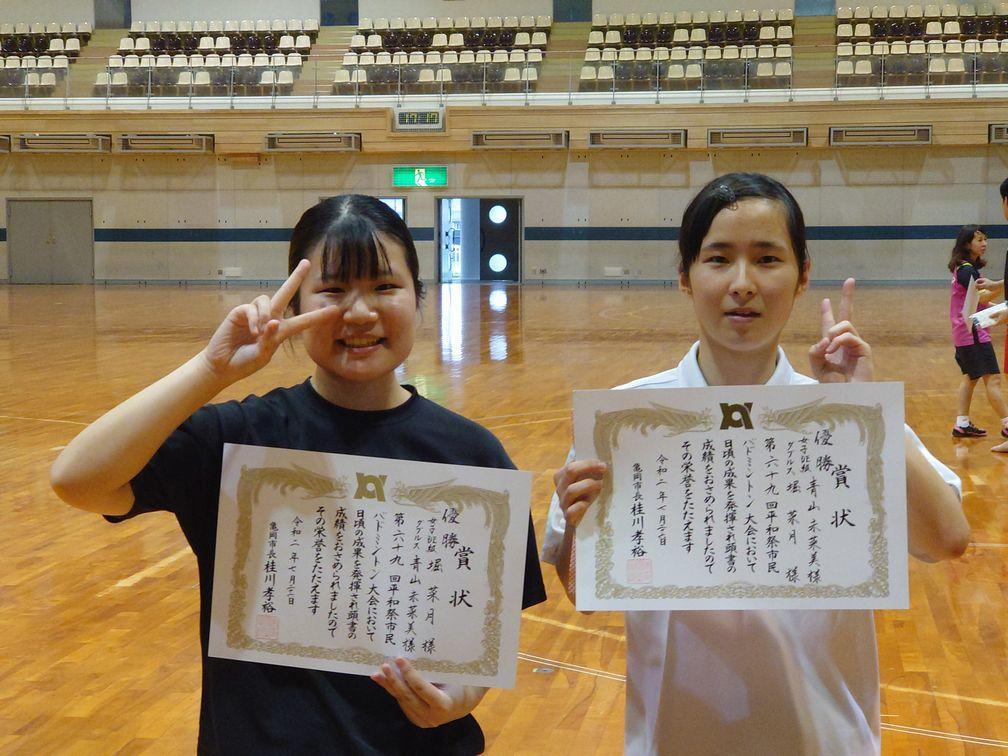 賞状
優勝
女子 級
ダブルス
堀 菜月 様
青山 未菜美 様
第六十九回平和祭市民
バドミントン大会において
日頃の成果を発揮され頭書の
成績をおさめられましたので
その栄誉をたたえます
令和 年七月 日
亀岡市長 桂川孝裕
賞状
優勝
女子 級
ダブルス
青山 未菜美 様
堀 菜月 様
第六十九回平和祭市民
バドミントン大会において
日頃の成果を発揮され頭書の
成績をおさめられましたので
その栄誉をたたえます
令和 年七月 日
亀岡市長 桂川孝裕